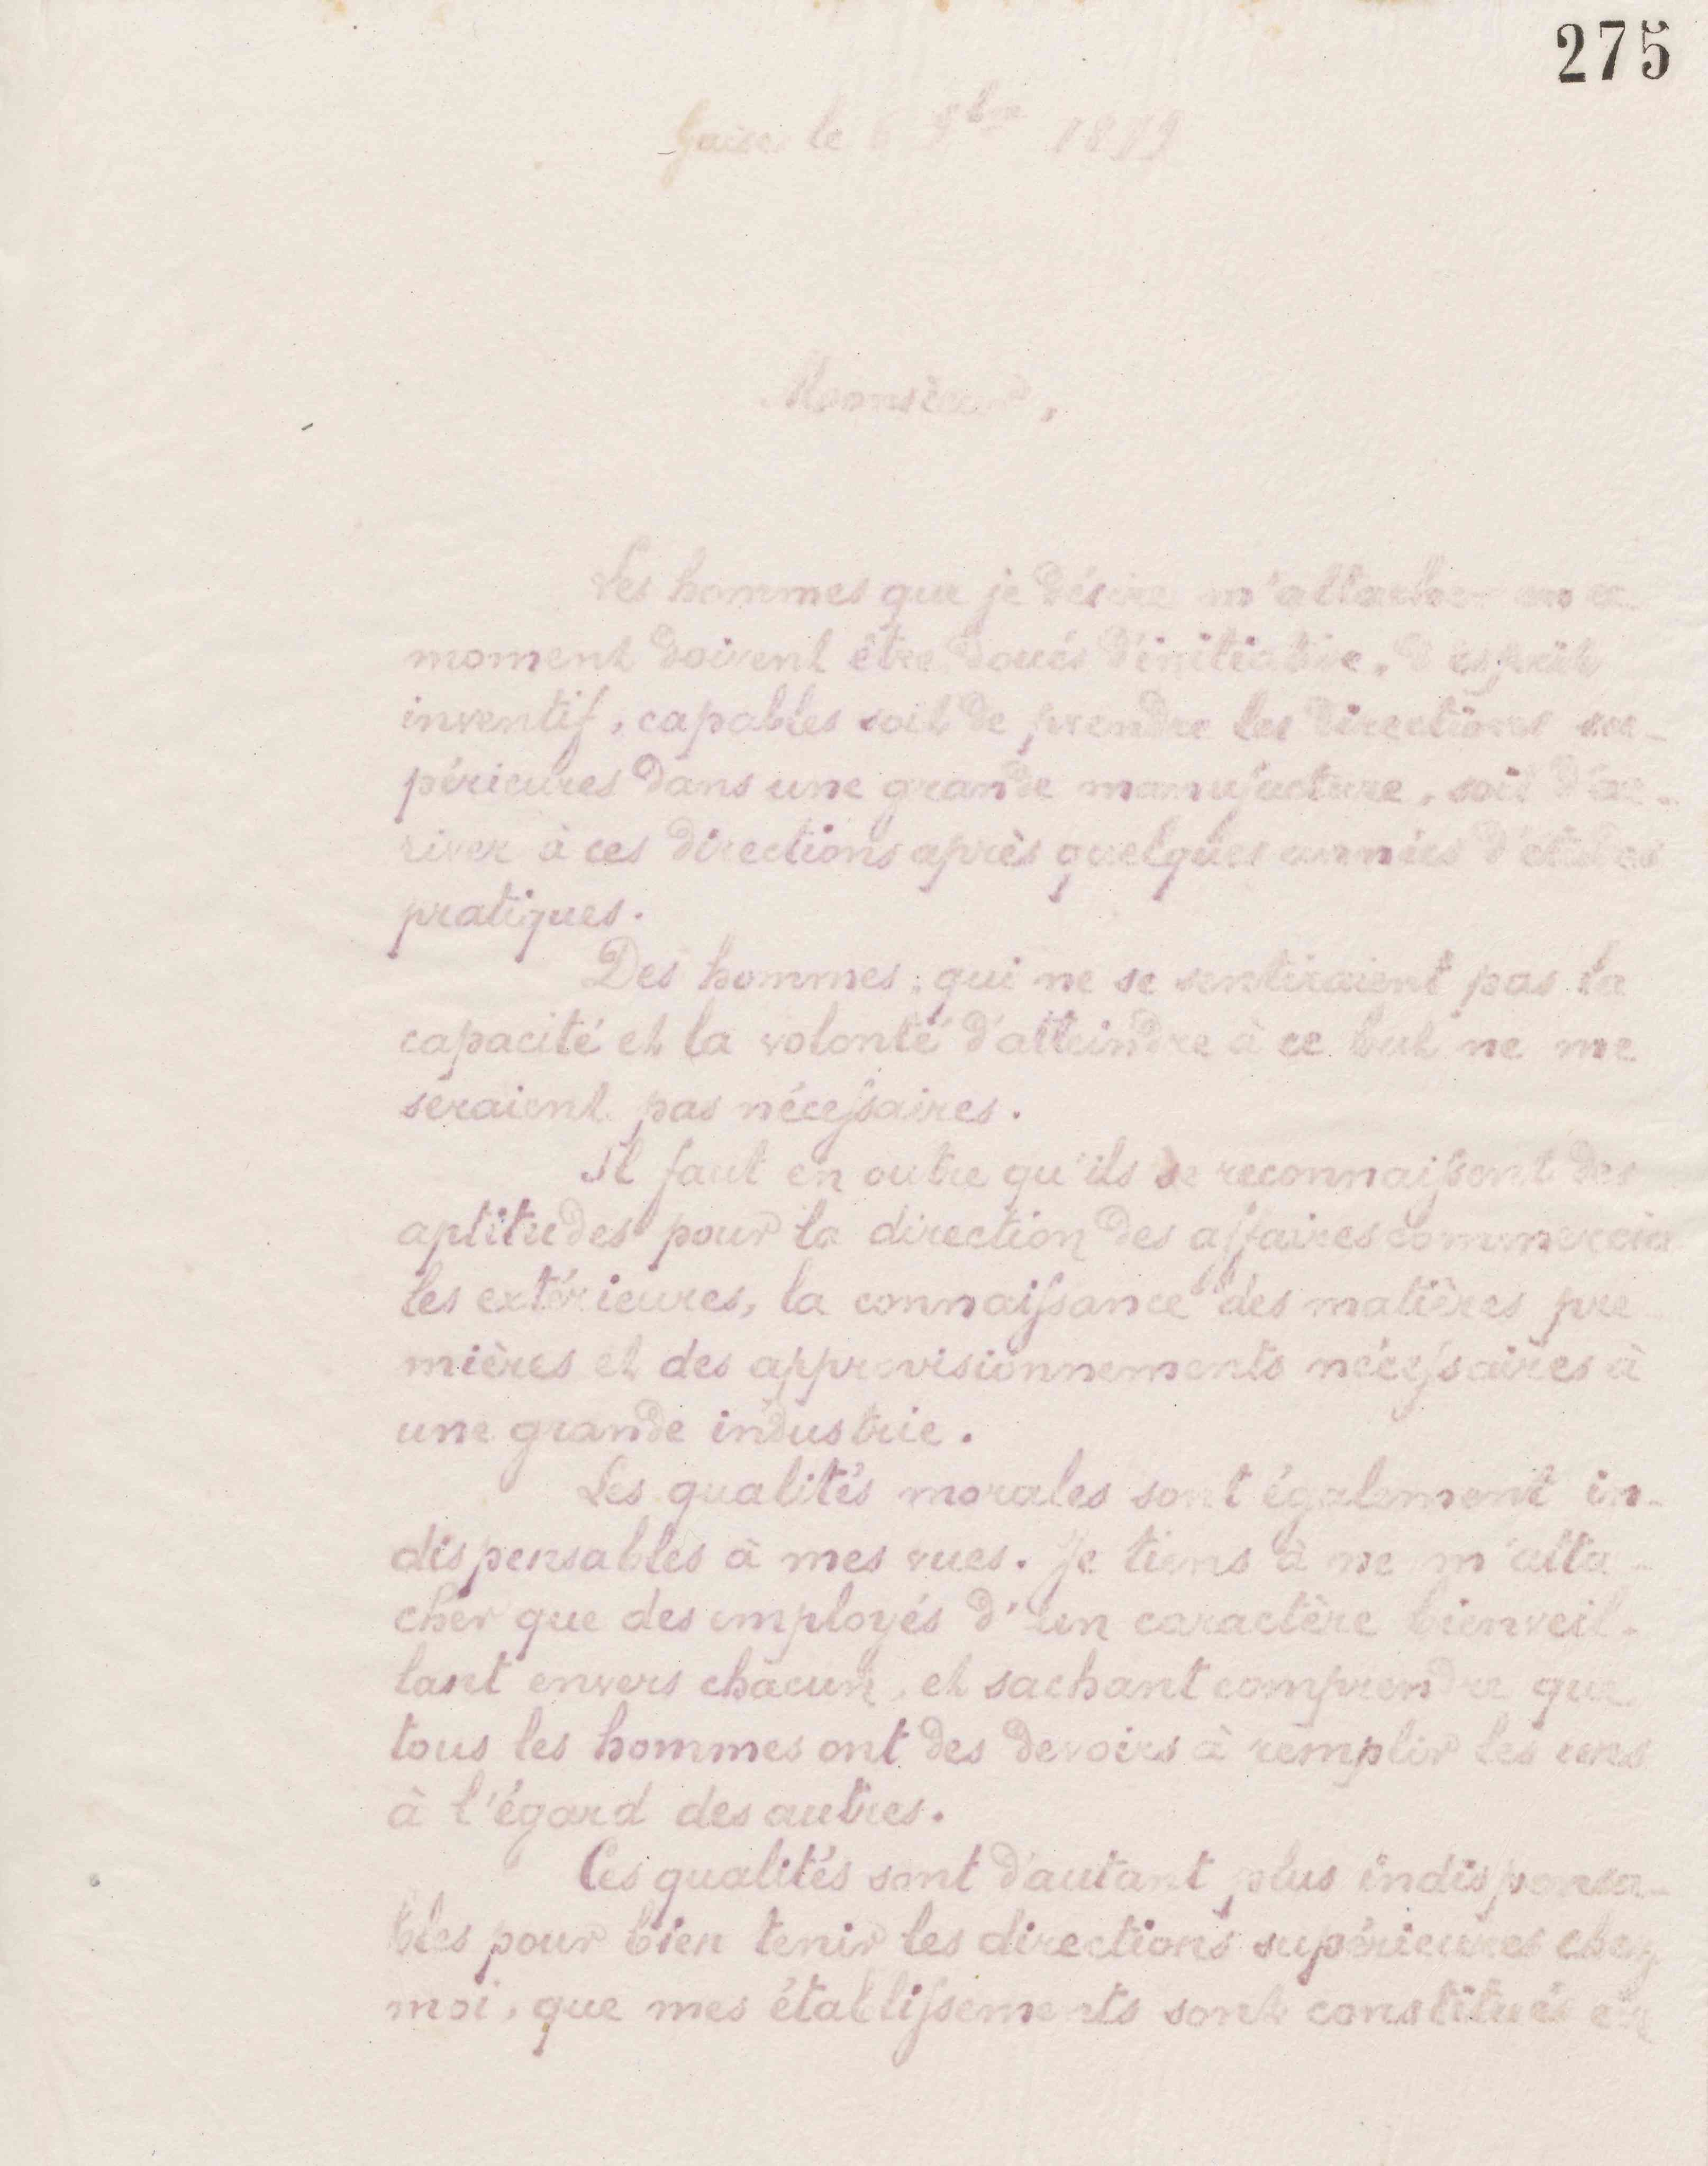 275
Guise le 6 8bre 1879
Monsieur,
Les hommes que je désire m'attacher en ce
moment doivent être doués d'initiative, d'esprit
inventif, capables soit de prendre les directions su-
périeures dans une grande manufacture, soit d'ar-
river à ces directions après quelques années d'études
pratiques.
Des hommes, qui ne se sentiraient pas la
capacité et la volonté d'atteindre à ce but ne me
seraient pas nécessaires.
Il faut en outre qu'ils se reconnaissent des
aptitudes pour la direction des affaires commercia
les extérieures, la connaissance des matières pre
mières et des approvisionnements nécessaires à
une grande industrie.
Les qualités morales sont également in-
dispensables à mes vues. Je tiens à ne m'atta-
cher que des employés d'un caractère bienveil-
lant envers chacun, et sachant comprendre que
tous les hommes ont des devoirs à remplir les uns
à l'égard des autres.
Ces qualités sont d'autant plus indispensa-
bles pour bien tenir les directions supérieures chez
moi, que mes établissements sont constitués en